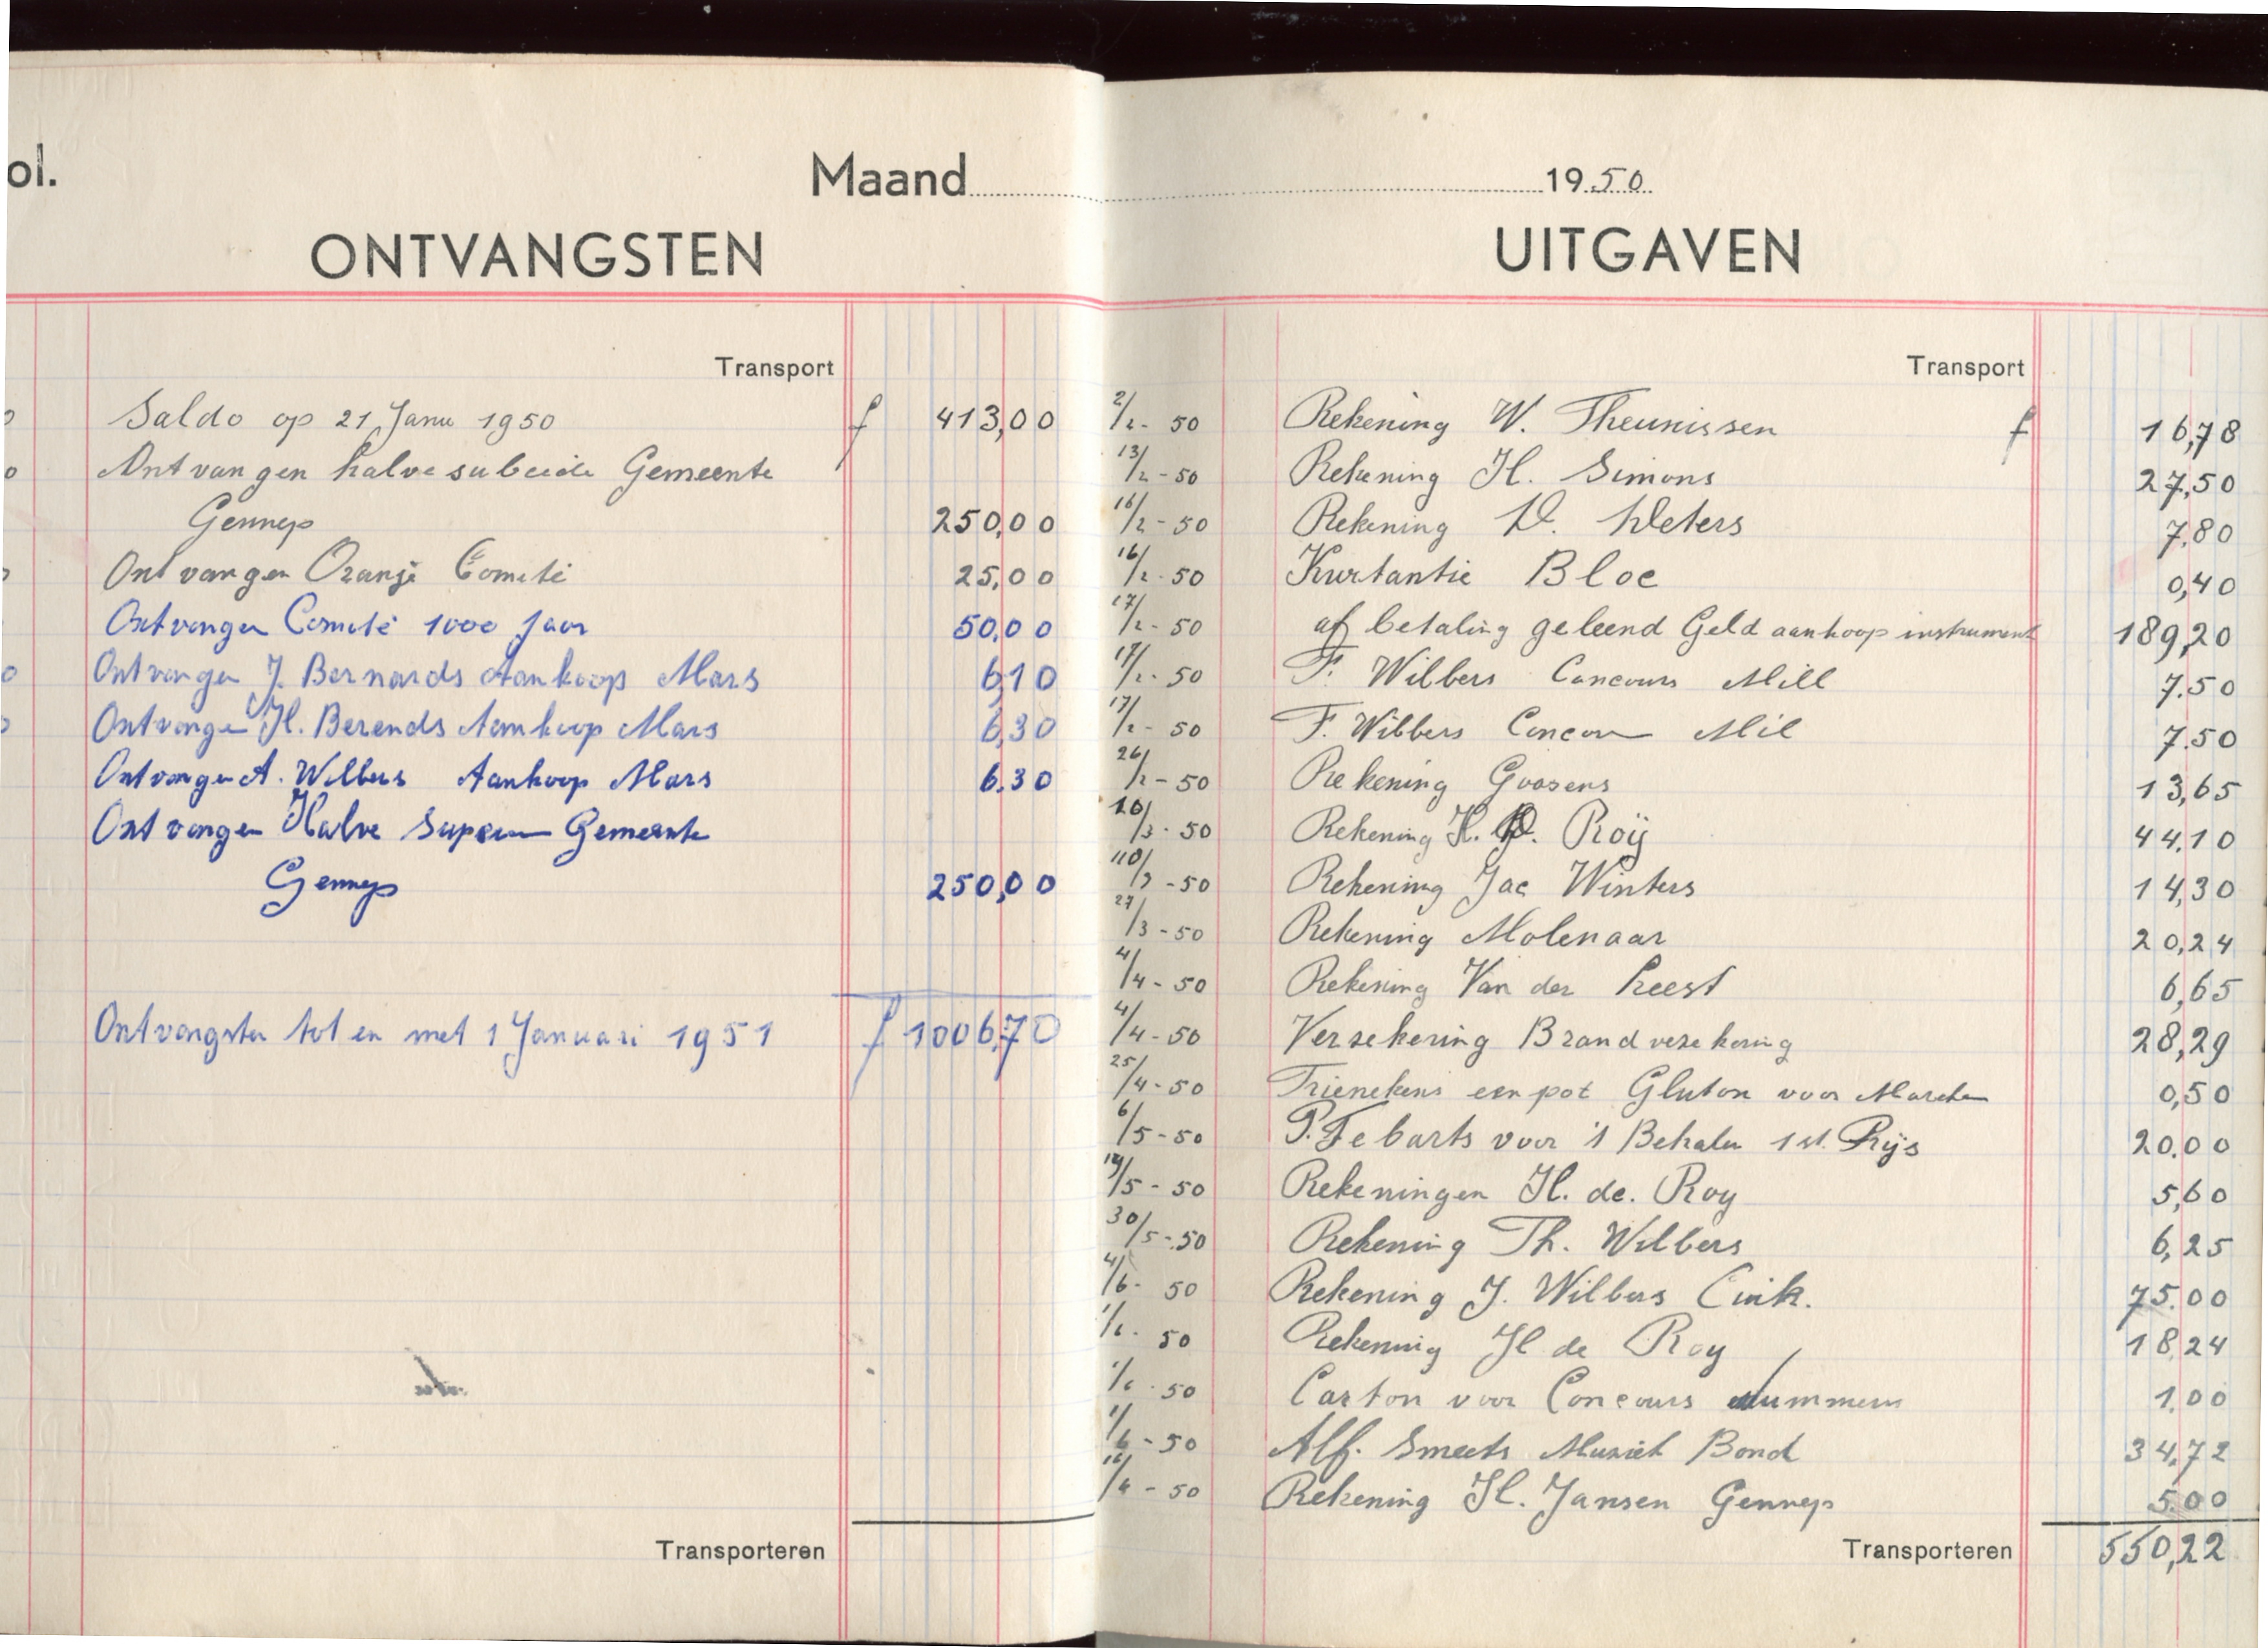 ol.
Maand
ONTVANGSTEN
Transport
Saldo op 21 Janu 1950 f 413,00
Ontvangen halve subsidie Gemeente
Gennep 250,00
Ontvangen Oranje Comité 25,00
Ontvangen Comité 1000 Jaar 50,00
Ontvangen J. Bernards Aankoop Mars 6,10
Ontvangen H. Berends Aankoop Mars 6,30
Ontvangen A. Wilbers Aankoop Mars 6.30
Ontvangen Halve Gemeente
Gennep 250,00
Ontvangsten tot en met 1 Januari 1951 f 1006,70
Transporteren
1950
UITGAVEN
Transport
2/2 - 50 Rekening W. Theunissen f 16,78
13/2 - 50 Rekening H. Simons 27,50
16/2 - 50 Rekening 7,80
16/2 - 50 Bloc 0,40
17/2 - 50 af betaling geleend Geld aankoop instrument 189,20
17/2 - 50 F. Wilbers Concours Mill 7.50
17/2 - 50 F. Wilbers Concour Mil 7.50
26/2 - 50 Rekening Goosens 13,65
10/3 - 50 Rekening H. Roÿ 44,10
/3 - 50 Rekening Jac Winters 14,30
27/3 - 50 Rekening Molenaar 20,24
4/4 - 50 Rekening Van der 6,65
4/4 - 50 Verzekering Brandverzekering 28,29
25/4 - 50 Trienekens een pot Gluton voor 0,50
6/5 - 50 voor 't Behalen 1 st. Prijs 20.00
/5 - 50 Rekeningen H. de. Roy 5,60
30/5 - 50 Rekening Th. Wilbers 6,25
4/6 - 50 Rekening J. Wilbers 75.00
50 Rekening H de Roy 18,24
50 Carton voor Concours nummers 1,00
1/6 - 50 Alf. Smeets Muziek Bond 34,72
/6 - 50 Rekening H. Jansen Gennep 5.00
Transporteren 550,22